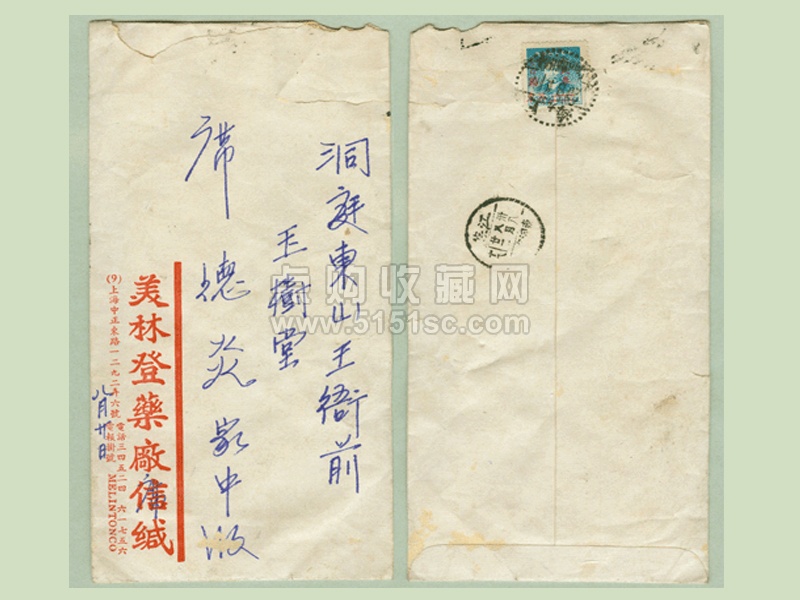 洞庭東山王衙前
王樹堂
席德炎家中收
美林登藥廠信緘
席
(9)上海中正東路一二九二弄六號
電話三四五二四 六一七五六
電報掛號 MELINTONCO
八月廿日
点购收藏网
www.5151sc.com